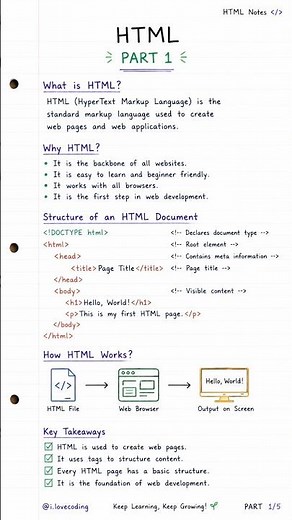 HTML Notes </>
HTML
PART 1
What is HTML?
HTML (HyperText Markup Language) is the
standard markup language used to create
web pages and web applications.
Why HTML?
• It is the backbone of all websites.
• It is easy to learn and beginner friendly.
• It works with all browsers.
• It is the first step in web development.
Structure of an HTML Document
<!DOCTYPE html> <!-- Declares document type -->
<html> <!-- Root element -->
<head> <!-- Contains meta information -->
<title> Page Title </title> <!-- Page title -->
</head>
<body> <!-- Visible content -->
<h1> Hello, World! </h1>
<p> This is my first HTML page. </p>
</body>
</html>
How HTML Works?
</>
</>
Hello, World!
HTML File Web Browser Output on Screen
Key Takeaways
HTML is used to create web pages.
It uses tags to structure content.
Every HTML page has a basic structure.
It is the foundation of web development.
@i.lovecoding Keep Learning, Keep Growing! PART 1/5